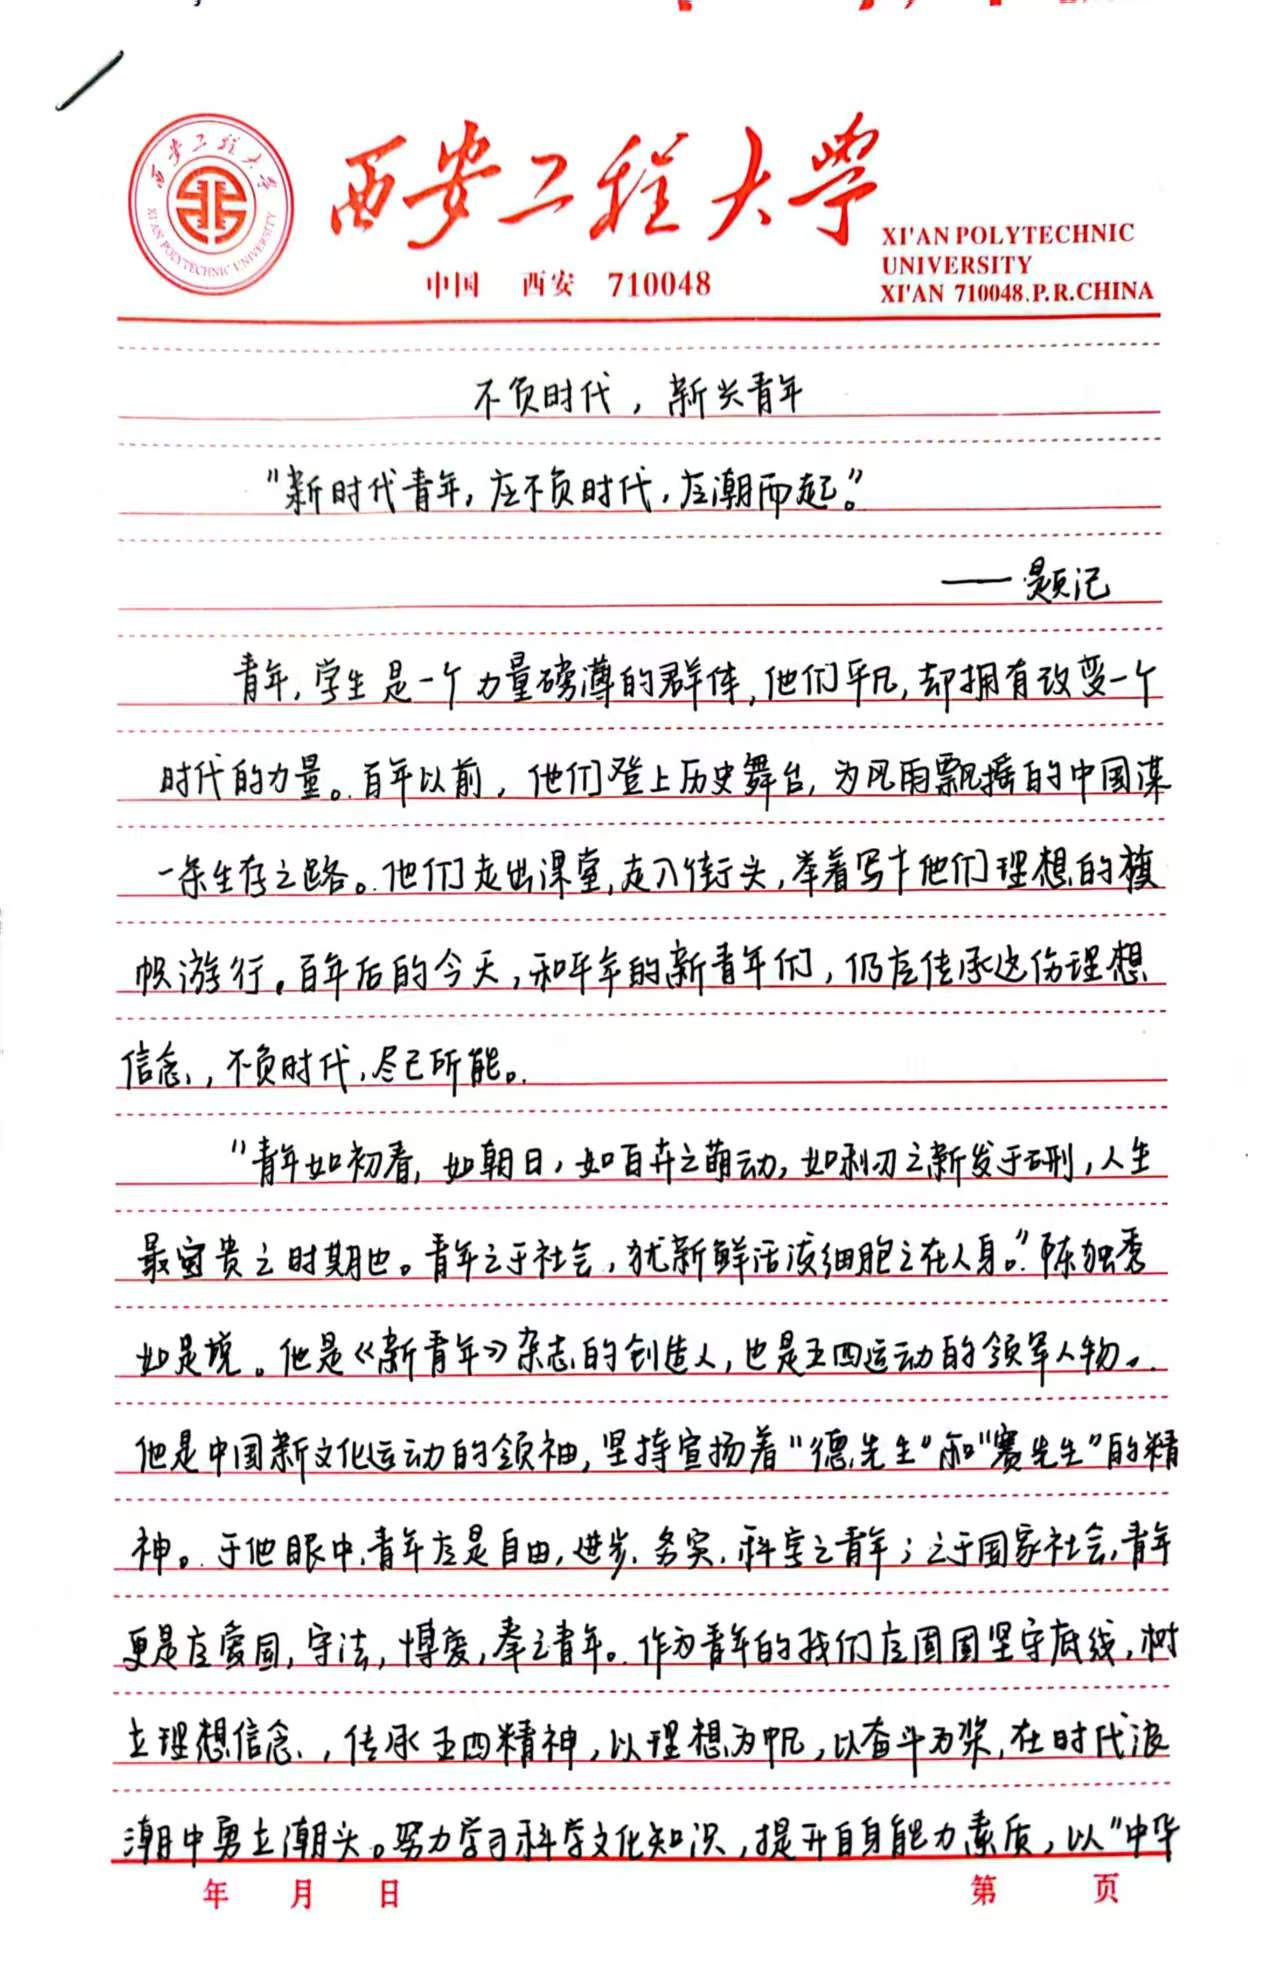 西安工程大學
西安工程大学
XI'AN POLYTECHNIC UNIVERSITY
中国 西安 710048
XI'AN POLYTECHNIC
UNIVERSITY
XI'AN 710048.P.R.CHINA
不负时代，新兴青年
“新时代青年，应不负时代，应潮而起。”
——题记
青年，学生是一个力量磅薄的群体，他们平凡，却拥有改变一个
时代的力量。百年以前，他们登上历史舞台，为风雨飘摇的中国谋
一条生存之路。他们走出课堂，走入街头，举着写下他们理想的旗
帜游行。百年后的今天，和平年的新青年们，仍应传承这份理想
信念，不负时代，尽己所能。
“青年如初春，如朝日，如百卉之萌动，如利刃之新发于硎，人生
最宝贵之时期也。青年之于社会，犹新鲜活泼细胞之在人身。”陈独秀
如是说。他是《新青年》杂志的创造人，也是五四运动的领军人物。
他是中国新文化运动的领袖，坚持宣扬着“德先生”和“赛先生”的精
神。于他眼中，青年应是自由，进步，务实，科学之青年；之于国家社会，青年
更是应爱国，守法，博爱，奉之青年。作为青年的我们应固国坚守底线，树
立理想信念，传承五四精神，以理想为帆，以奋斗为桨，在时代浪
潮中勇立潮头。努力学习科学文化知识，提升自身能力素质，以“中华
年 月 日 第 页